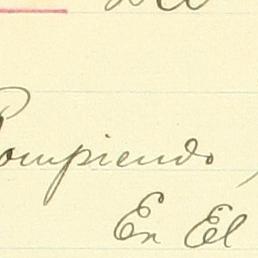 Rompiendo,
En El